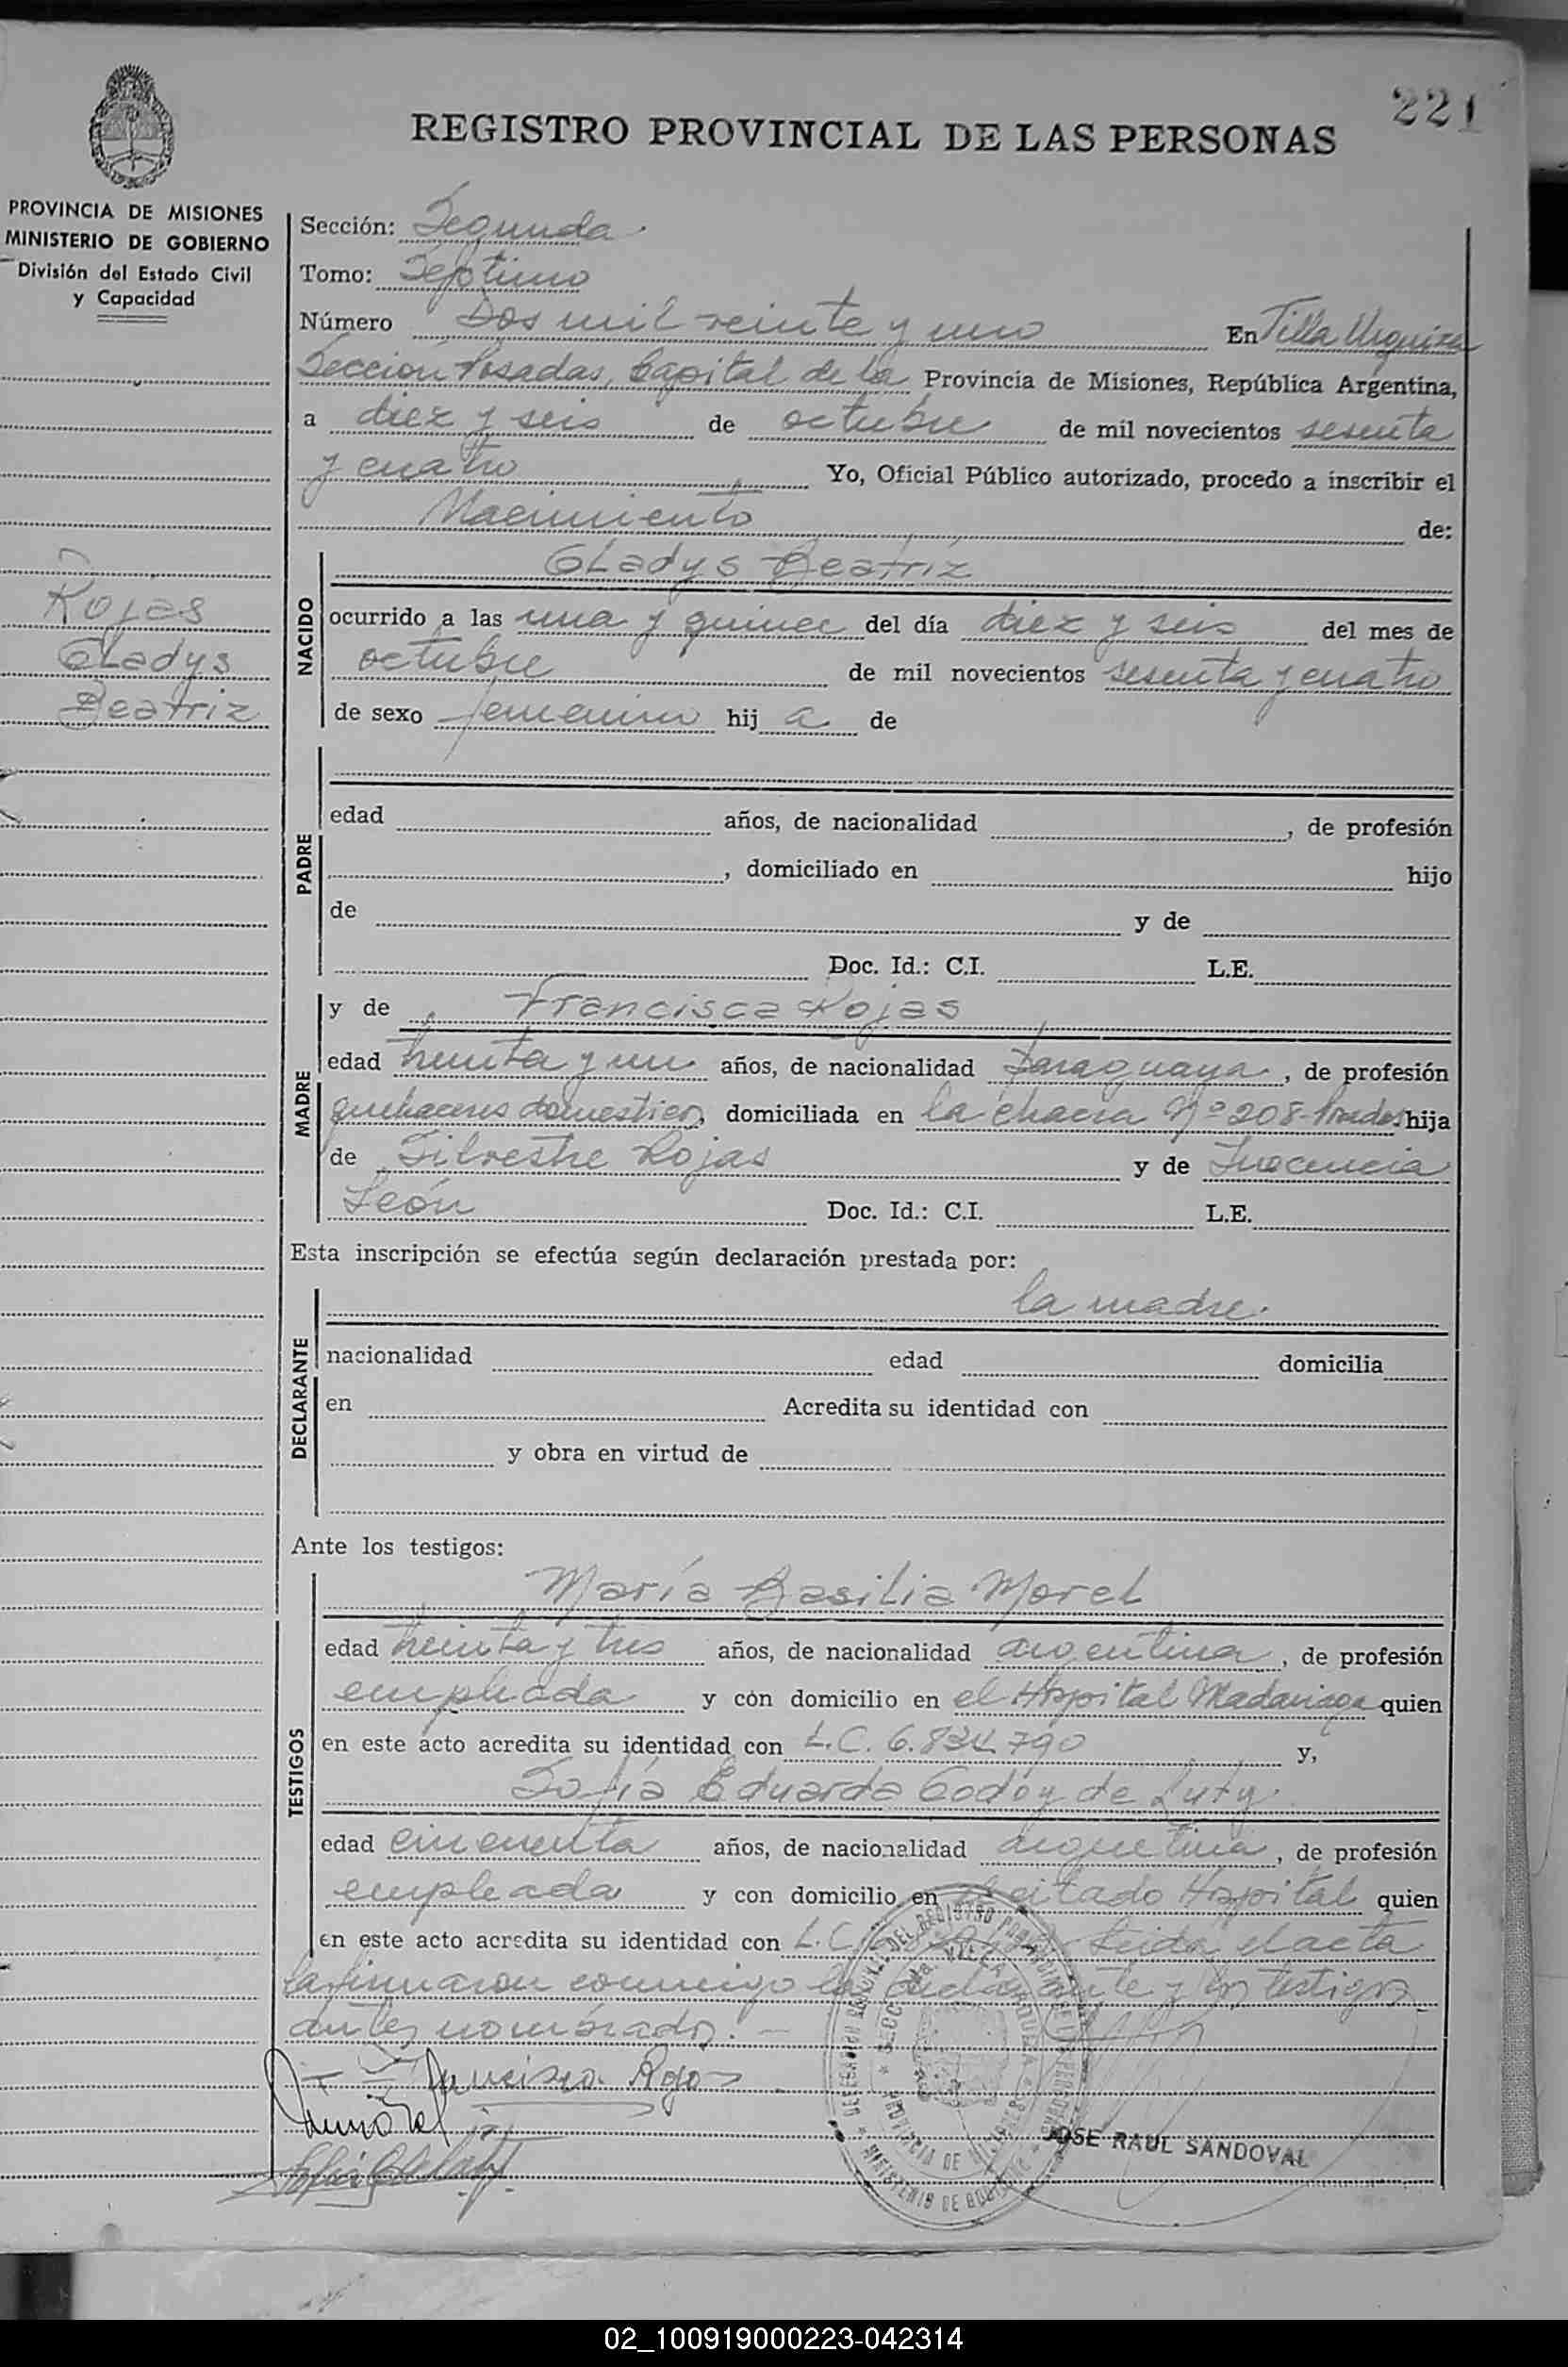 221
REGISTRO PROVINCIAL DE LAS PERSONAS
PROVINCIA DE MISIONES
MINISTERIO DE GOBIERNO
División del Estado Civil
y Capacidad
Sección: Segunda
Tomo: Séptimo
Número Dos mil veinte y uno En Villa Urquiza
Sección Posadas, Capital de la Provincia de Misiones, República Argentina,
a diez y seis de octubre de mil novecientos sesenta
y cuatro Yo, Oficial Público autorizado, procedo a inscribir el
Nacimiento de:
Rojas
Gladys
Beatriz
NACIDO
Gladys Beatríz
ocurrido a las una y quince del día diez y seis del mes de
octubre de mil novecientos sesenta y cuatro
de sexo femenino hij a de
PADRE
edad años, de nacionalidad , de profesión
, domiciliado en hijo
de y de
Doc. Id.: C.I. L.E.
MADRE
y de Francisca Rojas
edad treinta y un años, de nacionalidad Paraguaya, de profesión
quehaceres domesticos, domiciliada en la chacra Nº 208- Posadas hija
de Silvestre Rojas y de Inocencia
León Doc. Id.: C.I. L.E.
Esta inscripción se efectúa según declaración prestada por:
DECLARANTE
la madre.
nacionalidad edad domicilia
en Acredita su identidad con
y obra en virtud de
Ante los testigos:
TESTIGOS
María Basilia Morel
edad treinta y tres años, de nacionalidad argentina, de profesión
empleada y con domicilio en el Hospital Madariaga quien
en este acto acredita su identidad con L.C. 6.834.790 y,
Sofía Eduarda Godóy de Luty
edad cincuenta años, de nacionalidad argentina, de profesión
empleada y con domicilio en citado Hospital quien
en este acto acredita su identidad con L.C. Leida el acta
la firmaron conmigo la declarante y los testigos
antes nombrados. —
Francisca Rojas
JOSE RAUL SANDOVAL
02_100919000223-042314